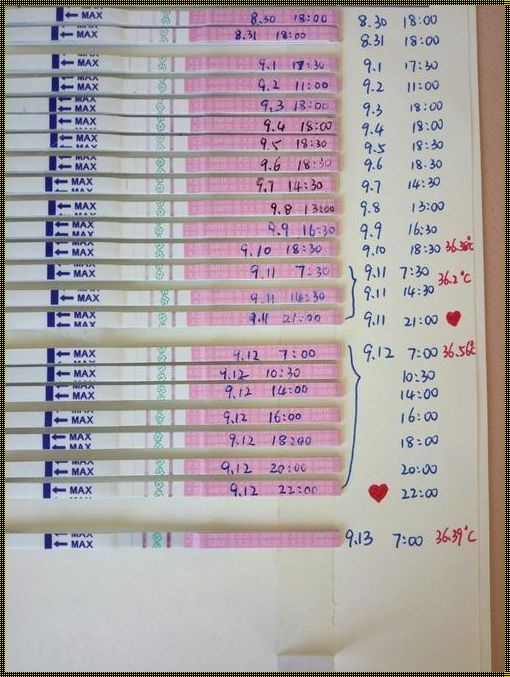 MAX 8.30 18:00 8.30 18:00
MAX 8.31 18:00 8.31 18:00
MAX 9.1 17:30 9.1 17:30
MAX 9.2 11:00 9.2 11:00
MAX 9.3 18:00 9.3 18:00
MAX 9.4 18:00 9.4 18:00
MAX 9.5 18:30 9.5 18:30
MAX 9.6 18:30 9.6 18.30
MAX 9.7 14:30 9.7 14:30
MAX 9.8 13:00 9.8 13:00
MAX 9.9 16:30 9.9 16:30
MAX 9.10 18:30 9.10 18:30 36.38℃
MAX 9.11 7:30 9.11 7:30 36.2℃
MAX 9.11 14:30 9.11 14:30
MAX 9.11 21:00 9.11 21:00
MAX 9.12 7:00 9.12 7:00 36.56℃
MAX 9.12 10:30 10:30
MAX 9.12 14:00 14:00
MAX 9.12 16:00 16:00
MAX 9.12 18:00 18:00
MAX 9.12 20:00 20:00
MAX 9.12 22:00 22:00
MAX 9.13 7:00 36.39℃